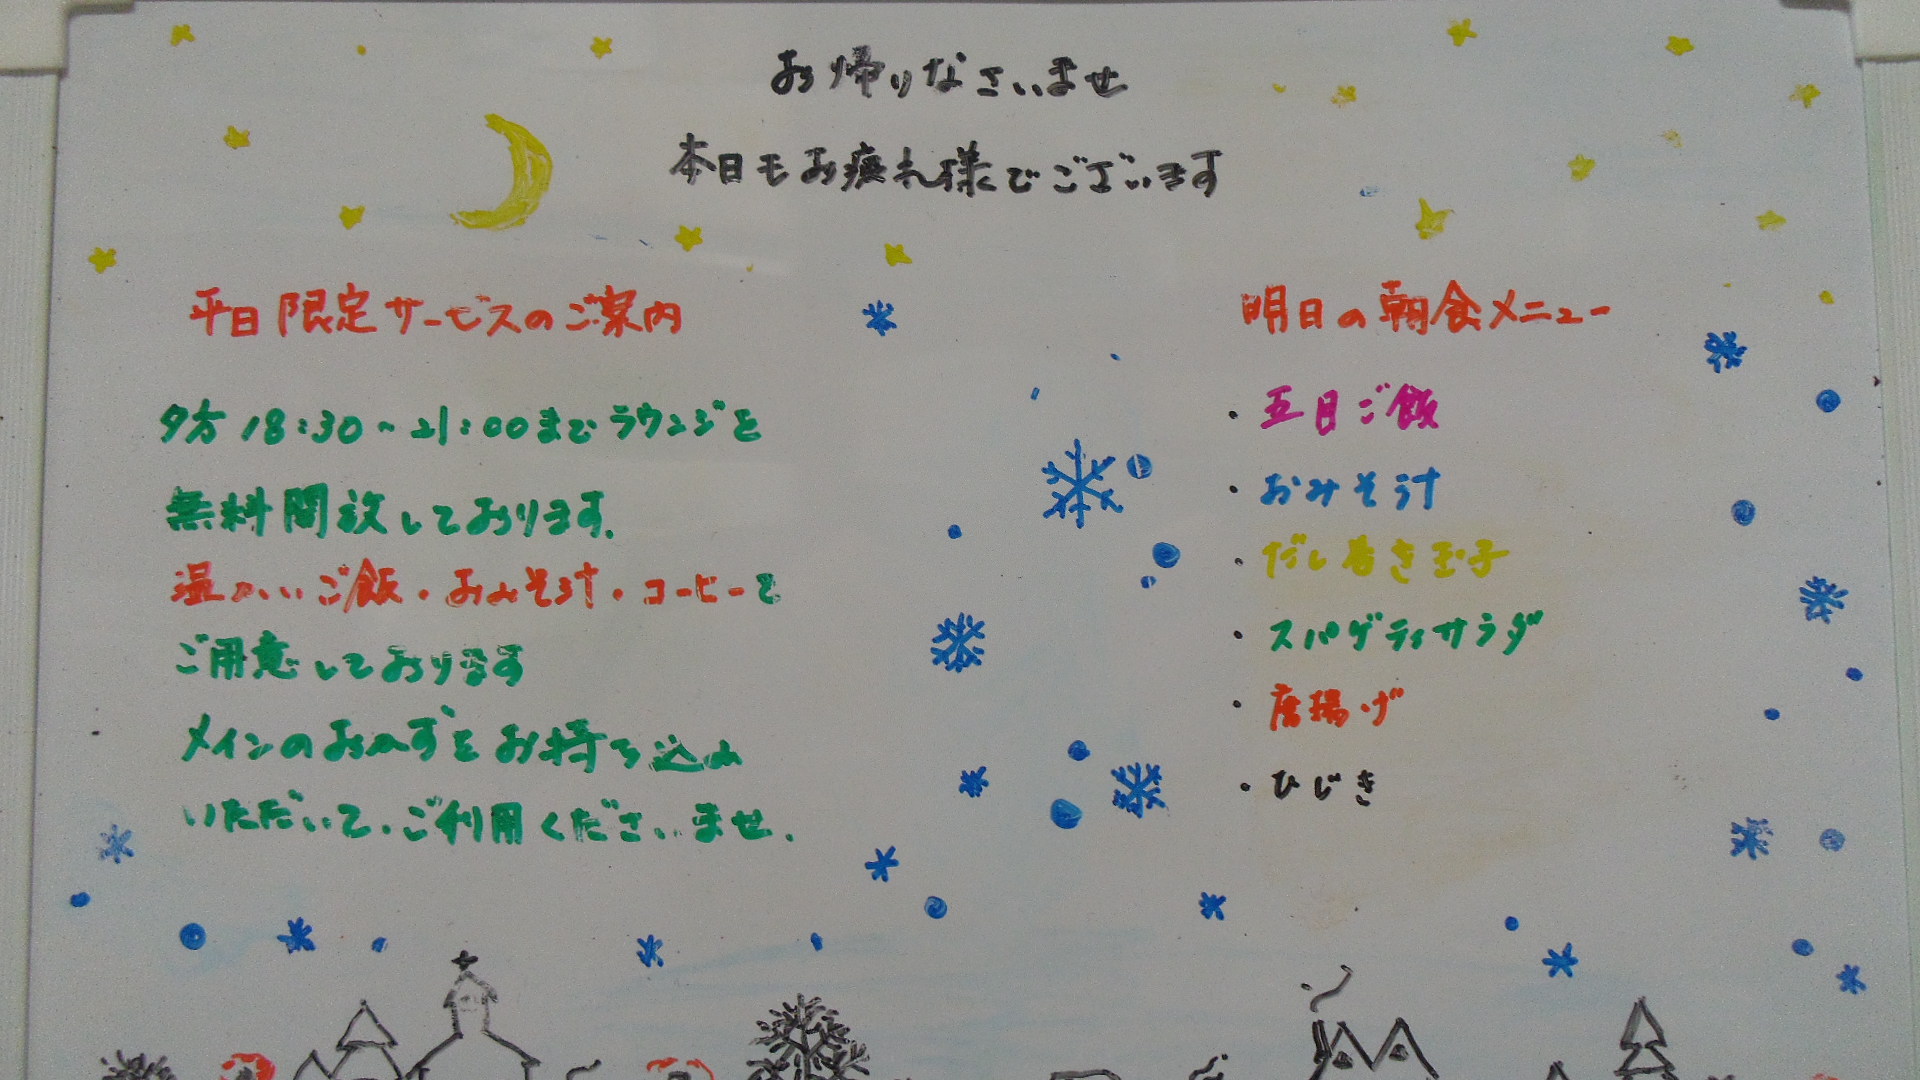 お帰りなさいませ
本日もお疲れ様でございます
平日限定サービスのご案内
夕方18:30~21:00までラウンジを
無料開放しております.
温かいご飯・おみそ汁・コーヒーを
ご用意しております
メインのおかずをお持ち込み
いただいて、ご利用くださいませ.
明日の朝食メニュー
・五目ご飯
・おみそ汁
・だし巻き玉子
・スパゲティサラダ
・唐揚げ
・ひじき